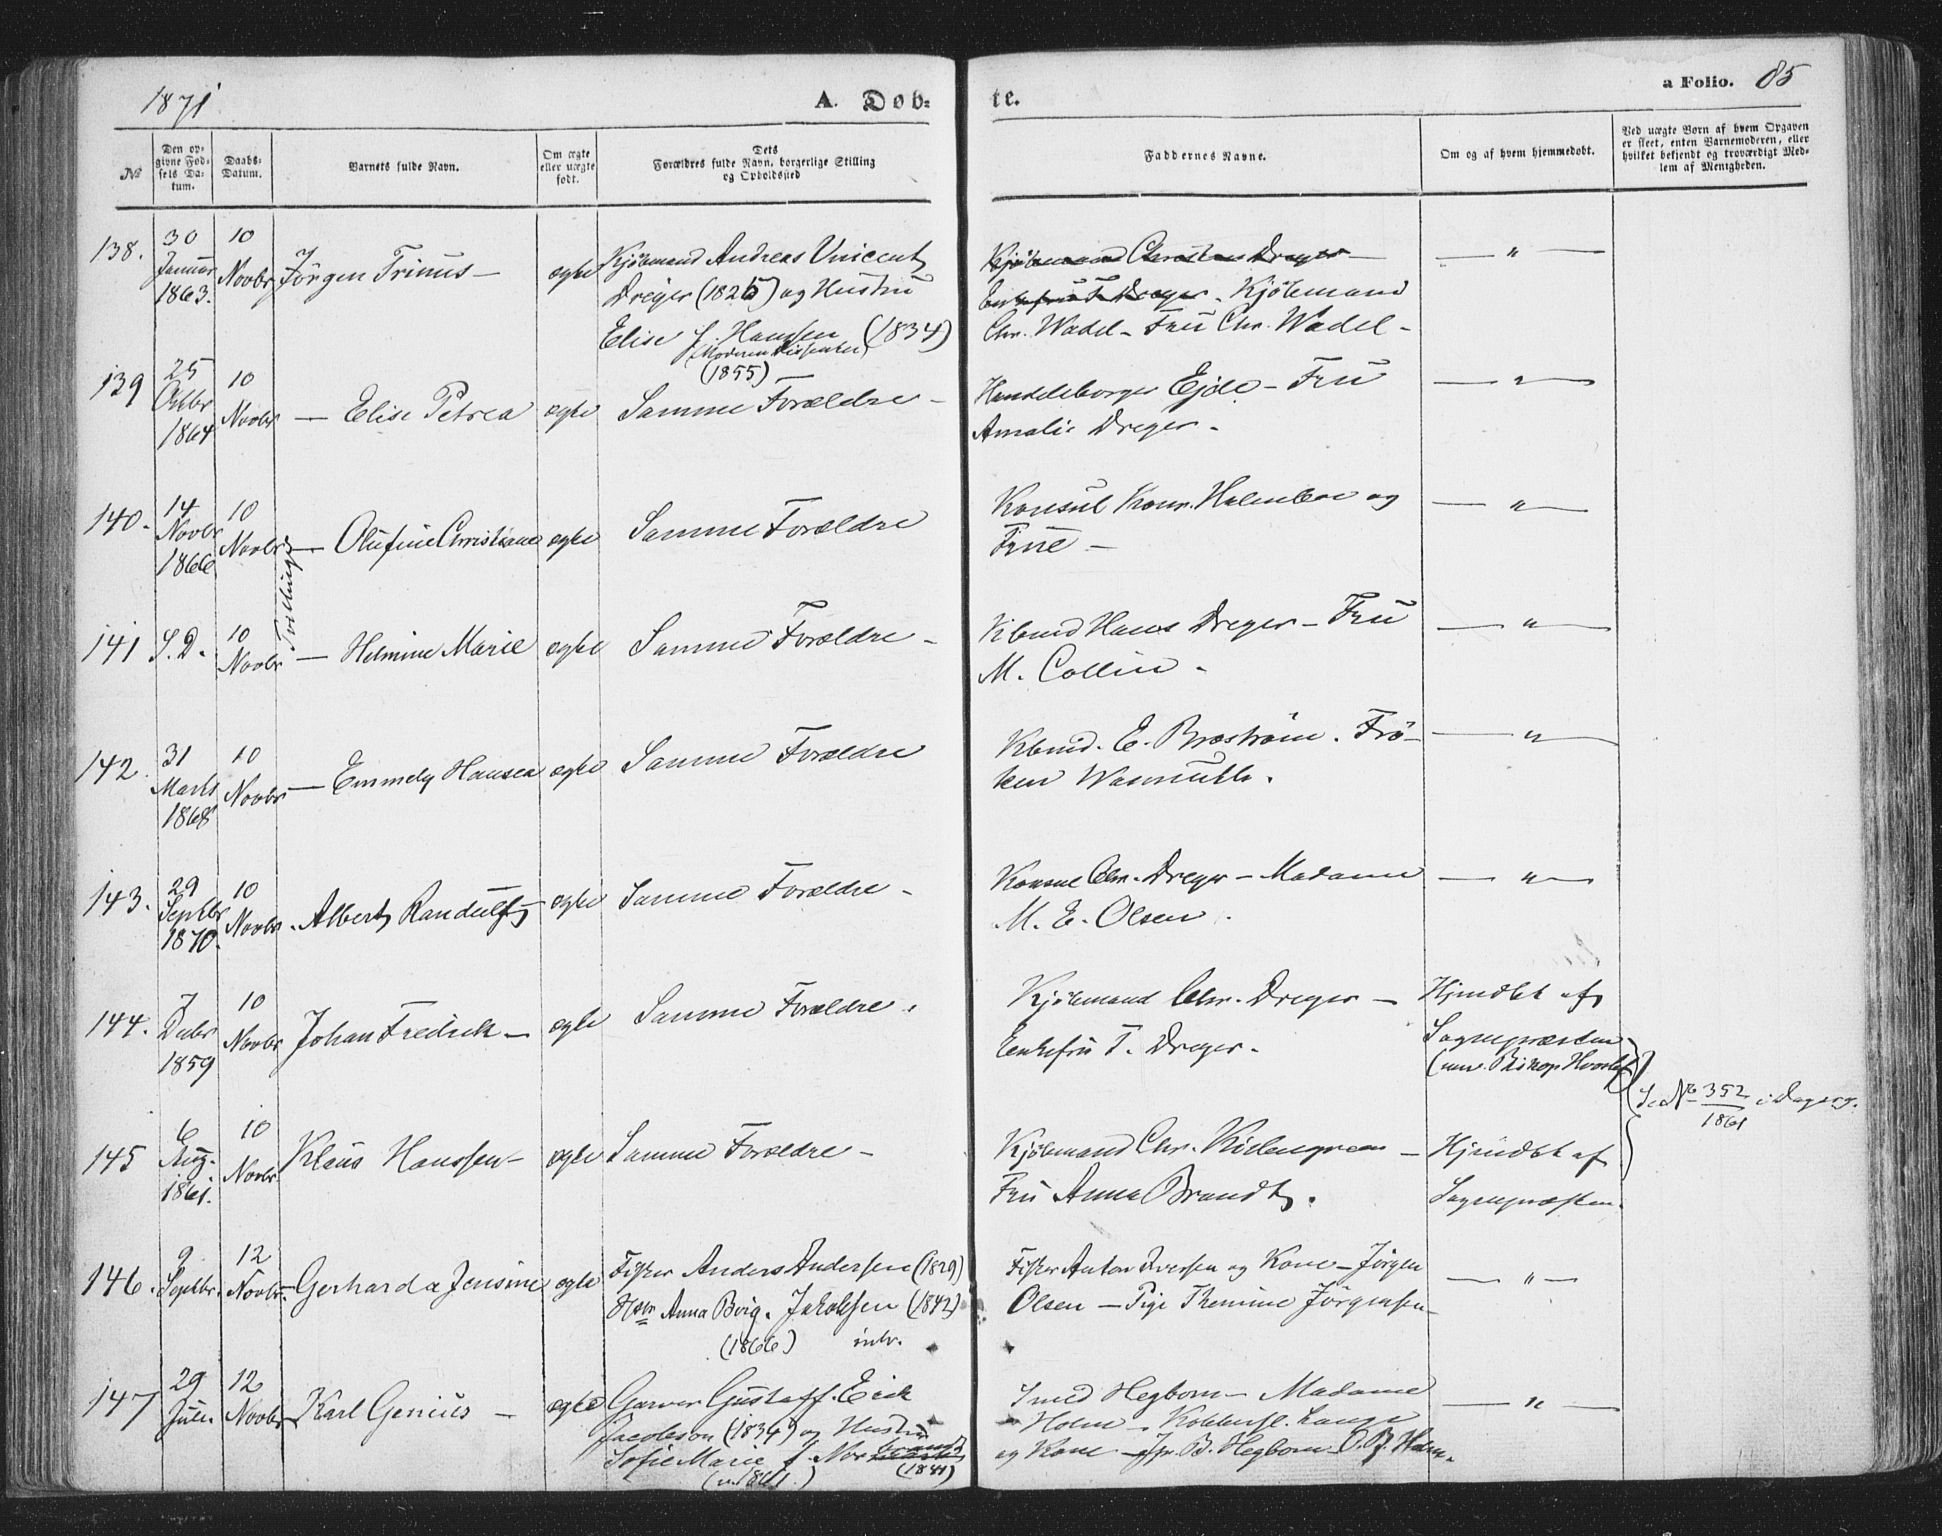 1871
A. Døb-
te.
a Folio. 85
No
Den op-
givne Fød-
sels Da-
tum.
Daabs-
Datum.
Barnets fulde Navn.
Om ægte
eller uægte
født.
Dets
Forældres fulde Navn, borgerlige Stilling
og Opholdssted
Faddernes Navne.
Om og af hvem hjemmedøbt.
Ved uægte Børn af hvem Opgaven
er skeet, enten Barnemoderen, eller
hvilket bekjendt og troværdigt Med-
lem af Menigheden.
138.
30
Januar
1863.
10
Novbr
Jörgen Trinus —
ægte
Kjöbmand Andreas Vincent
Dreyer (1825) og Hustru
Elise f. Hanssen (1834)
(Moderen Dissenter)
(1855)
Kjöbmand Christian Dreyer
Enkefru T. Dreyer. Kjöbmand
Chr. Wadel – Fru Chr. Wadel –
— " —
139
25
Oktbr
1864
10
Novbr
— Elise Petrea
ægte
Samme Forældre –
Handelsborger Ejde – Fru
Amalie Dreyer –
— " —
140.
14
Novbr
1866
10
Novbr
Tvillinger
— Olufine Christiane
ægte
Samme Forældre
Konsul Konr. Holmboe og
Frue –
— " —
141
S. D.
10
Novbr
— Helmine Marie
ægte
Samme Forældre –
Kbmd Hans Dreyer – Fru
M. Collin –
— " —
142.
31
Marts
1868
10
Novbr
— Emmely Hansea
ægte
Samme Forældre
Kbmd. E. Broström. Frö-
ken Wasmuth.
— " —
143.
29
Septbr
1870.
10
Novbr.
Albert Randulf
ægte
Samme Forældre –
Konsul Chr. Dreyer – Madame
M. E. Olsen.
— " —
144.
7
Decbr
1859
10
Novbr
Johan Fredrik –
ægte
Samme Forældre.
Kjöbmand Chr. Dreyer –
Enkefru T. Dreyer.
Hjmdbt af
Sognepræsten
(nuv. Biskop Hvoslef)
Se No 352/1861 i Dagreg.
145
6
Aug.
1861.
10
Novbr.
Klaus Hanssen –
ægte
Samme Forældre –
Kjöbmand Chr. Kildengreen –
Fru Anna Brandt.
Hjmdbt af
Sognepræsten.
146.
9
Septbr.
12
Novbr.
Gerharda Jensine
ægte
Fisker Anders Andersen (1829)
Hstr Anna Berg. Jakobsen (1842)
(1866) indv.
Fisker Anton Iversen og Kone – Jörgen
Olsen – Pige Themine Jörgensen –
— " —
147
29
Juli.
12
Novbr
Karl Genius —
ægte
Garver Gustaff Erik
Jacobson (1834) og Hustru
Sofie Marie f. Norbrandt
(1841)
(v. 1861.)
Smed Hegbom – Madame
Holm – Kobbersl. Lange
og Kone – Jfr. B. Hegbom O. B. Holm.
— " —